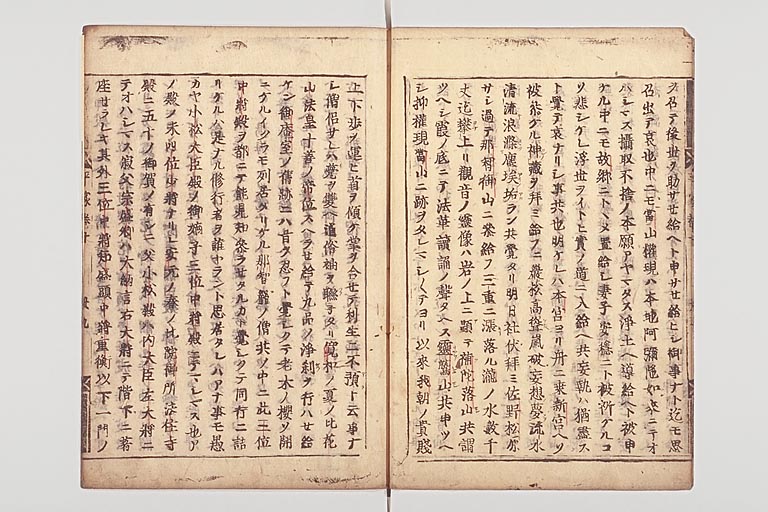 ヲ召テ後世ヲ助サセ給ヘト申サセ給ヒシ御事ナト迄モ思
召出テ哀也中ニモ當山權現ハ本地阿彌陀如來ニテオ
ハシマス攝取不捨ノ本願アヤマタス淨土ヘ導給ヘト被申
ケル中ニモ故郷ニトヽメ置給シ妻子安穩ニト被祈ケルコ
ソ悲シケレ浮世ヲイトヒ實ノ道ニ入給ヘ共妄執ハ猶盡ス
ト覺テ哀ナリシ事共也明ケレハ本宮ヨリ舟ニ乘新宮ヘソ
被參ケル神藏ヲ拜ミ給フニ巖松高聳嵐破妄想夢流水
清流浪濯塵埃垢ラン共覺タリ明日社伏拜ミ佐野松原
サシ過テ那智御山ニ參給フ三重ニ漲落ル瀧ノ水數千
丈迄攀上リ觀音ノ靈像ハ岩ノ上ニ顯テ補陀落山共謂
ツヘシ霞ノ底ニテ法華讀誦ノ聲キコヘス靈鷲山共申ツヘ
シ抑權現當山ニ跡ヲタレマシ〱テヨリ以來我朝ノ貴賤
上下歩ヲ運ヒ首ヲ傾ケ掌ヲ合セテ利生ニ不預ト云事ナ
シ僧侶サレハ甍ヲ雙ヘ道俗袖ヲ聯子タリ寛和ノ夏ノ比花
山法皇十善ノ帝位ヲスヘラセ給テ九品ノ淨刹ヲ行ハセ給
ケン御庵室ノ舊跡ニハ昔ヲ忍フト覺シクテ老木ノ櫻ソ開
ニケルイクラモ列居タリケル那智籠ノ僧共ノ中ニ此三位
中將殿ヲ都ニテ能見知參ラセタルカト覺シクテ同行ニ語
リケルハ是ナル修行者ヲ誰ヤラント思居タレハアナ事モ愚
カヤ小松大臣殿ノ御嫡子三位中將殿ニテマシマス也ア
ノ殿ノ未四位少將ナリシ安元ノ春ノ比院御所法住寺
殿ニテ五十ノ御賀ノ有シニ父小松殿ハ内大臣左大將ニ
テオハシマス叔父宗盛卿ハ大納言右大將ニテ階下ニ着
座セラレキ其外三位中將知盛頭中將重衡以下一門ノ